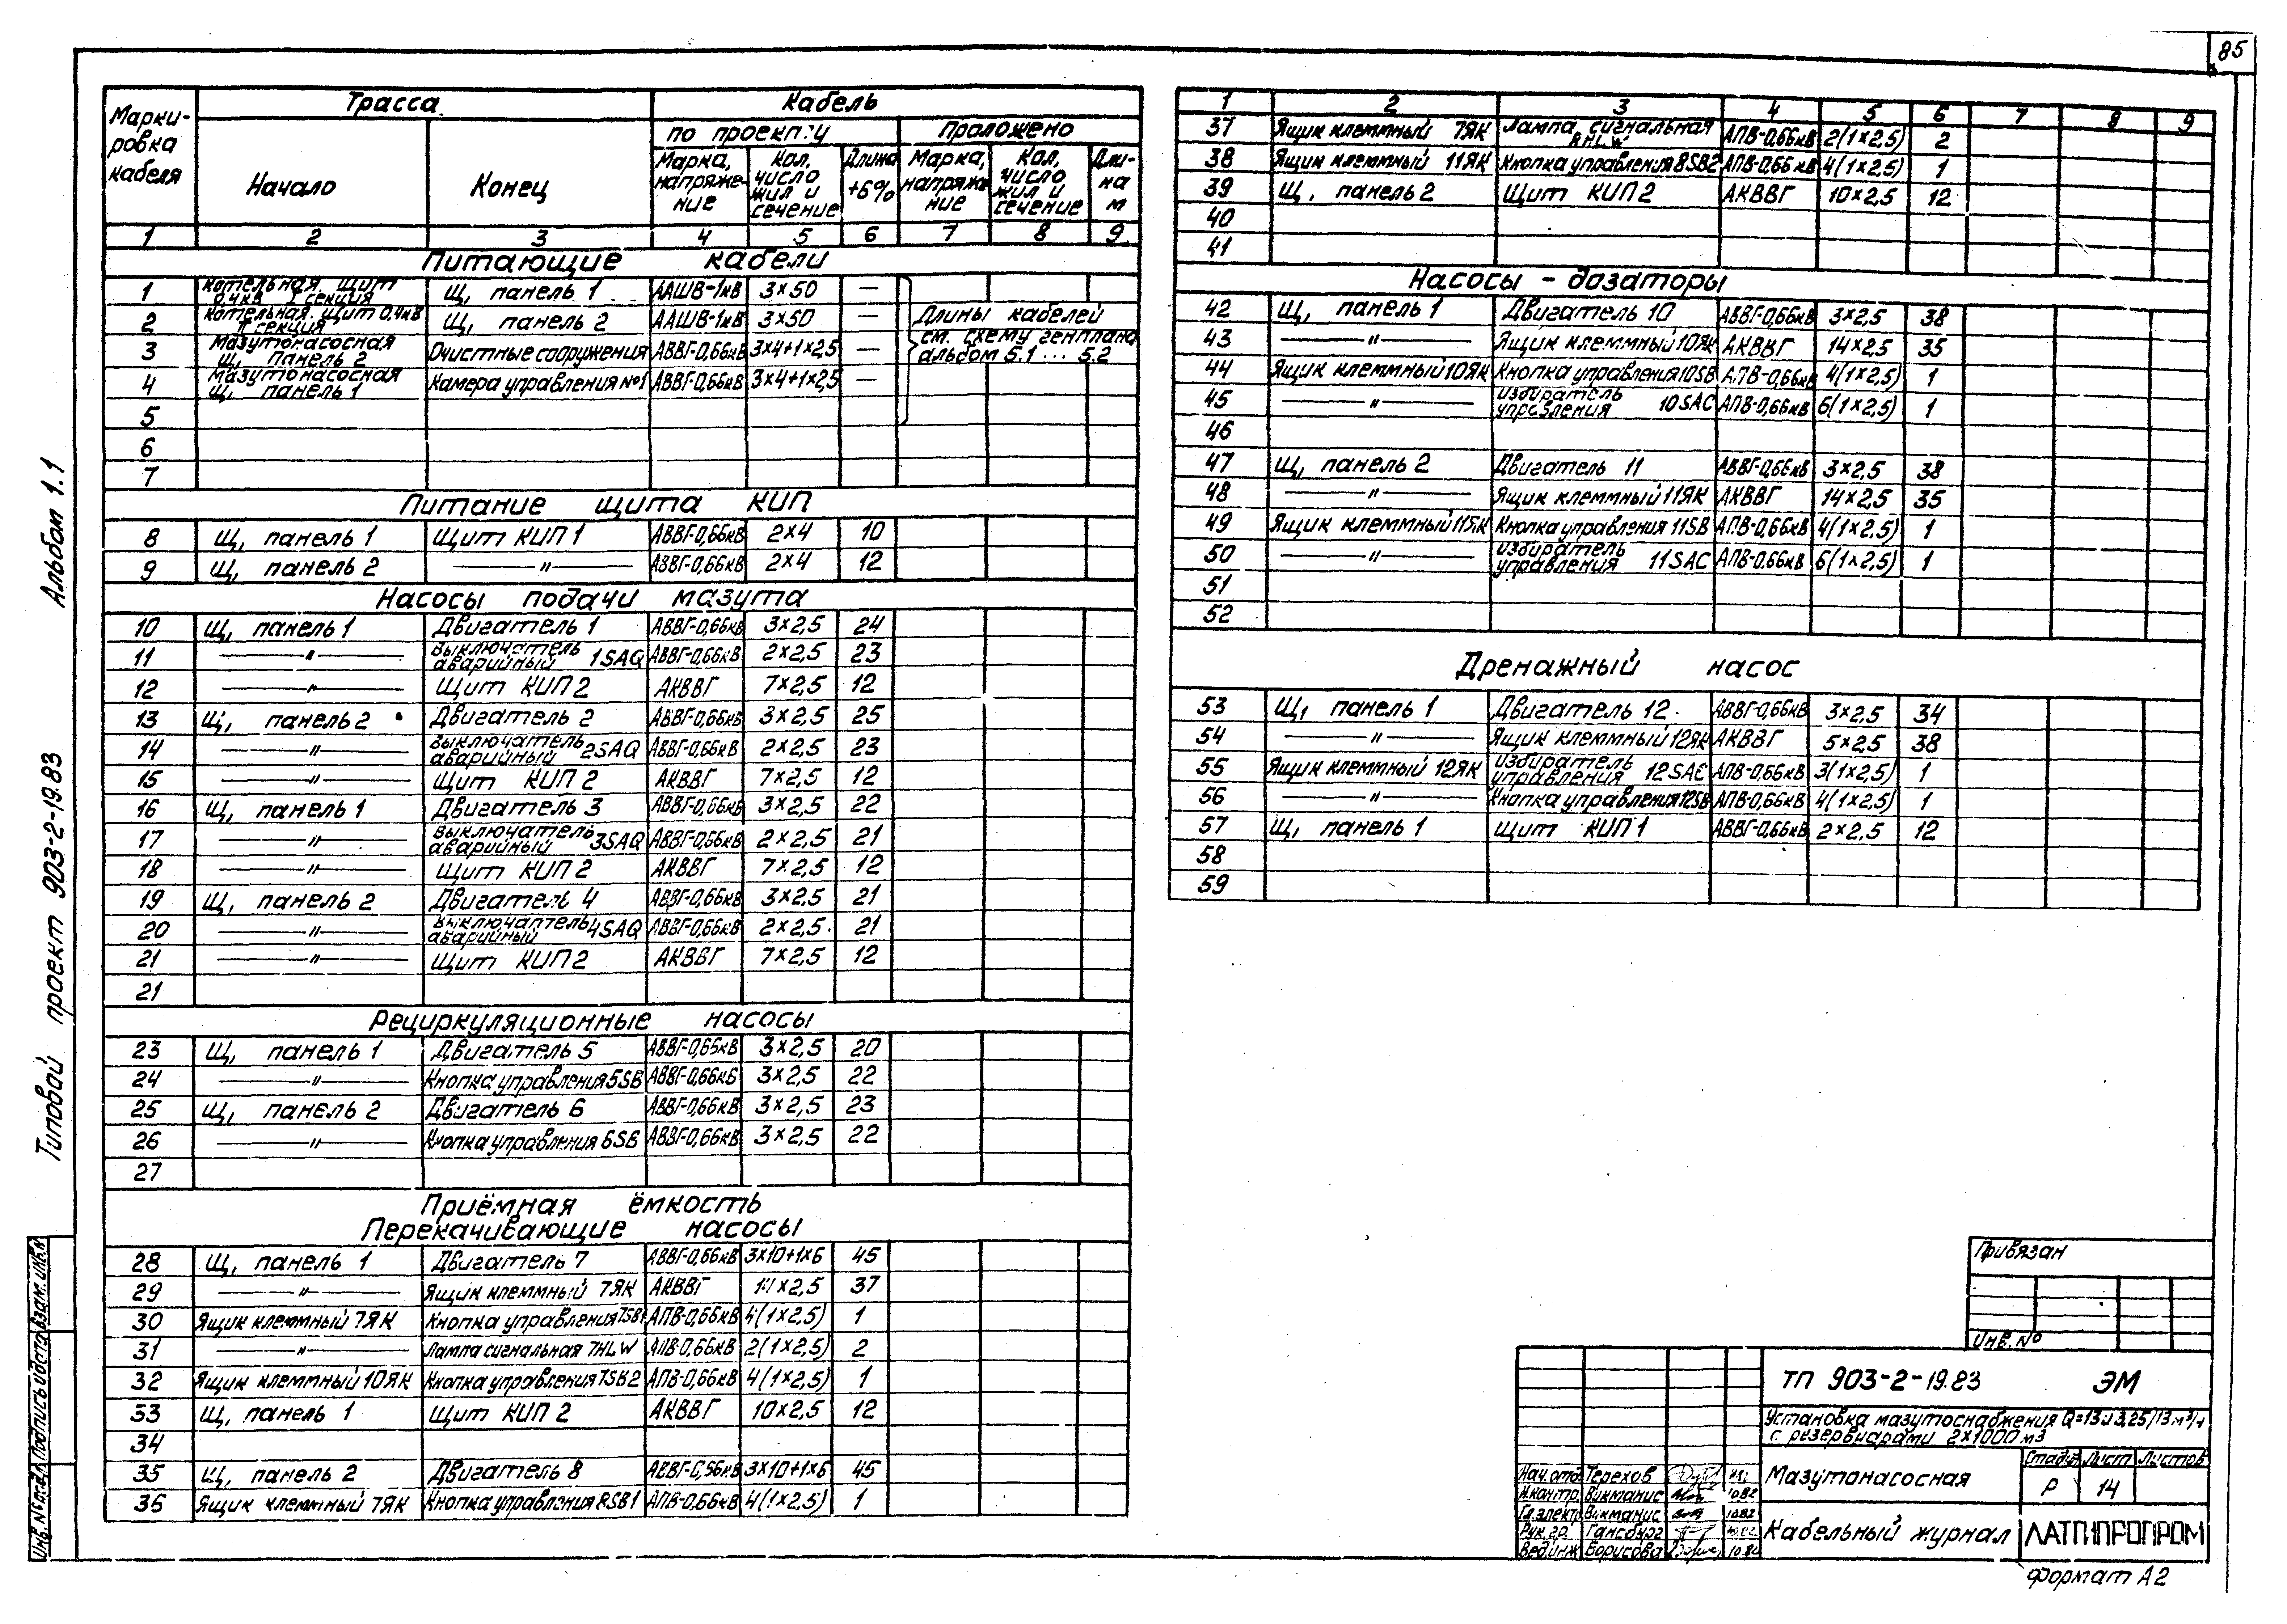 85
Альбом 1.1
Типовой проект 903-2-19.83
Марки-ровка кабеля | Трасса | Кабель
по проекту | Проложено
Начало | Конец | Марка, напряже-ние | Кол, число жил и сечение | Длина +6% | Марка, напряже-ние | Кол, число жил и сечение | Дли-на м
1 2 3 4 5 6 7 8 9
Питающие кабели
1 Котельная. щит 0,4кв I секция | Щ, панель 1 | ААШВ-1кв | 3×50 | —
2 Котельная. щит 0,4кв II секция | Щ, панель 2 | ААШВ-1кв | 3×50 | —
3 Мазутонасосная Щ, панель 2 | Очистные сооружения | АВВГ-0,66кв | 3×4+1×2,5 | —
4 Мазутонасосная Щ, панель 1 | Камера управления №1 | АВВГ-0,66кв | 3×4+1×2,5 | —
Длины кабелей см. схему генплана альбом 5.1 ... 5.2
5
6
7
Питание щита КИП
8 Щ, панель 1 | Щит КИП 1 | АВВГ-0,66кв | 2×4 | 10
9 Щ, панель 2 | —"— | АВВГ-0,66кв | 2×4 | 12
Насосы подачи мазута
10 Щ, панель 1 | Двигатель 1 | АВВГ-0,66кв | 3×2,5 | 24
11 —"— | Выключатель аварийный 1SAQ | АВВГ-0,66кв | 2×2,5 | 23
12 —"— | Щит КИП 2 | АКВВГ | 7×2,5 | 12
13 Щ, панель 2 | Двигатель 2 | АВВГ-0,66кв | 3×2,5 | 25
14 —"— | Выключатель аварийный 2SAQ | АВВГ-0,66кв | 2×2,5 | 23
15 —"— | Щит КИП 2 | АКВВГ | 7×2,5 | 12
16 Щ, панель 1 | Двигатель 3 | АВВГ-0,66кв | 3×2,5 | 22
17 —"— | Выключатель аварийный 3SAQ | АВВГ-0,66кв | 2×2,5 | 21
18 —"— | Щит КИП 2 | АКВВГ | 7×2,5 | 12
19 Щ, панель 2 | Двигатель 4 | АВВГ-0,66кв | 3×2,5 | 21
20 —"— | Выключатель аварийный 4SAQ | АВВГ-0,66кв | 2×2,5 | 21
21 —"— | Щит КИП 2 | АКВВГ | 7×2,5 | 12
21
Рециркуляционные насосы
23 Щ, панель 1 | Двигатель 5 | АВВГ-0,66кв | 3×2,5 | 20
24 —"— | Кнопка управления 5SB | АВВГ-0,66кв | 3×2,5 | 22
25 Щ, панель 2 | Двигатель 6 | АВВГ-0,66кв | 3×2,5 | 23
26 —"— | Кнопка управления 6SB | АВВГ-0,66кв | 3×2,5 | 22
27
Приёмная ёмкость
Перекачивающие насосы
28 Щ, панель 1 | Двигатель 7 | АВВГ-0,66кв | 3×10+1×6 | 45
29 —"— | Ящик клеммный 7ЯК | АКВВГ | 14×2,5 | 37
30 Ящик клеммный 7ЯК | Кнопка управления 7SB1 | АПВ-0,66кв | 4(1×2,5) | 1
31 —"— | Лампа сигнальная 7HLW | АПВ-0,66кв | 2(1×2,5) | 2
32 Ящик клеммный 10ЯК | Кнопка управления 7SB2 | АПВ-0,66кв | 4(1×2,5) | 1
33 Щ, панель 1 | Щит КИП 2 | АКВВГ | 10×2,5 | 12
34
35 Щ, панель 2 | Двигатель 8 | АВВГ-0,66кв | 3×10+1×6 | 45
36 Ящик клеммный 7ЯК | Кнопка управления 8SB1 | АПВ-0,66кв | 4(1×2,5) | 1
1 2 3 4 5 6 7 8 9
37 Ящик клеммный 7ЯК | Лампа сигнальная 8HLW | АПВ-0,66кв | 2(1×2,5) | 2
38 Ящик клеммный 11ЯК | Кнопка управления 8SB2 | АПВ-0,66кв | 4(1×2,5) | 1
39 Щ, панель 2 | Щит КИП 2 | АКВВГ | 10×2,5 | 12
40
41
Насосы - дозаторы
42 Щ, панель 1 | Двигатель 10 | АВВГ-0,66кв | 3×2,5 | 38
43 —"— | Ящик клеммный 10ЯК | АКВВГ | 14×2,5 | 35
44 Ящик клеммный 10ЯК | Кнопка управления 10SB | АПВ-0,66кв | 4(1×2,5) | 1
45 —"— | Избиратель управления 10SAC | АПВ-0,66кв | 6(1×2,5) | 1
46
47 Щ, панель 2 | Двигатель 11 | АВВГ-0,66кв | 3×2,5 | 38
48 —"— | Ящик клеммный 11ЯК | АКВВГ | 14×2,5 | 35
49 Ящик клеммный 11ЯК | Кнопка управления 11SB | АПВ-0,66кв | 4(1×2,5) | 1
50 —"— | Избиратель управления 11SAC | АПВ-0,66кв | 6(1×2,5) | 1
51
52
Дренажный насос
53 Щ, панель 1 | Двигатель 12 | АВВГ-0,66кв | 3×2,5 | 34
54 —"— | Ящик клеммный 12ЯК | АКВВГ | 5×2,5 | 38
55 Ящик клеммный 12ЯК | Избиратель управления 12SAC | АПВ-0,66кв | 3(1×2,5) | 1
56 —"— | Кнопка управления 12SB | АПВ-0,66кв | 4(1×2,5) | 1
57 Щ, панель 1 | Щит КИП 1 | АВВГ-0,66кв | 2×2,5 | 12
58
59
Привязан
Инв. №
ТП 903-2-19.83 ЭМ
Установка мазутоснабжения Q=13 и 3,25/13 м³/ч
с резервуарами 2×1000 м3
Мазутонасосная
Стадия Лист Листов
Р 14
Кабельный журнал
ЛАТГИПРОПРОМ
Нач. отд. Терехов
Н.контр. Викманис 10.82
Гл.электр. Викманис 10.82
Рук. гр. Гансбург
Вед.инж. Борисова 10.82
Формат А2
Инв. № подл. Подпись и дата Взам. инв. №